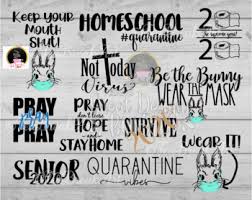 Keep your
Mouth
Shut!
HOMESCHOOL
#quarantine
2
2
Not Today
Virus
Be the Bunny
WEAR THE MASK
PRAY
pray
PRAY
PRAY
HOPE
and
STAYHOME
SURVIVE
WEAR IT!
SENIOR
2020
QUARANTINE
vibes